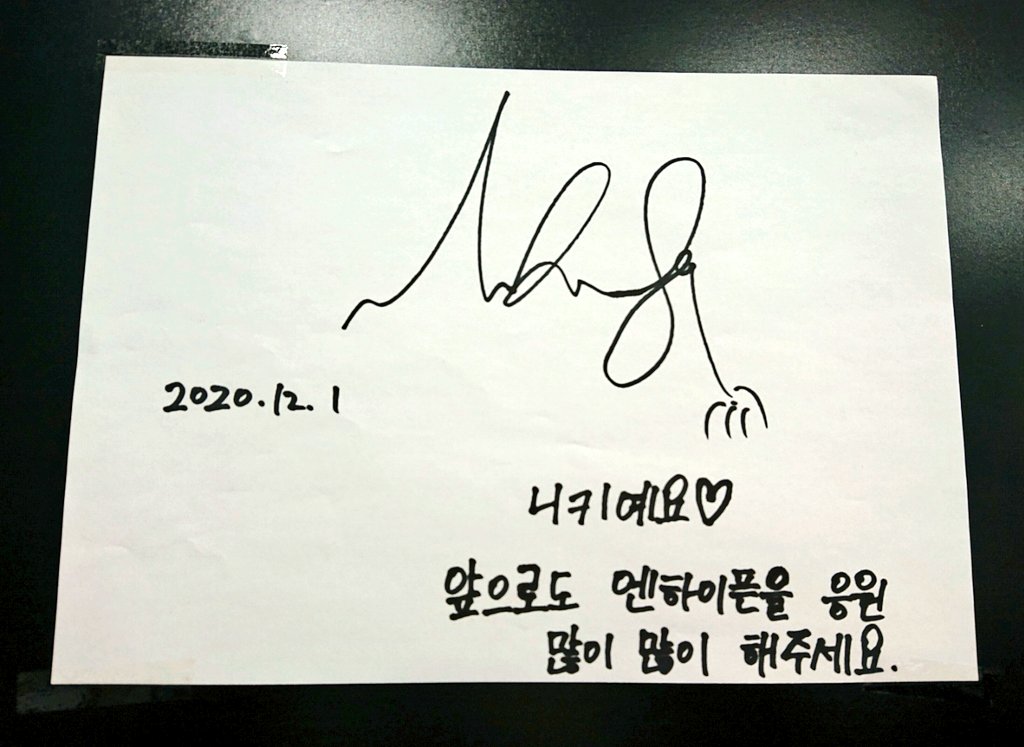 2020.12.1
니키예요♡
앞으로도 엔하이픈을 응원
많이 많이 해주세요.